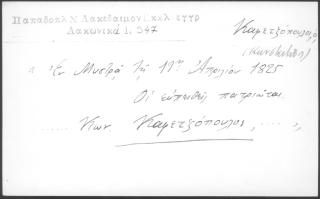 Παπαδοπλ Ν Λακεδαιμονι.κκλ εγγρ
Λακωνικά 1. 347
Καρετζόπουλος
(Κωνσταντίνος)
"Εν Μυστρά τη 11ην Απριλίου 1825
Οι ευπειθείς πατριώται
...... Κων. Καρετζόπουλος, .... "